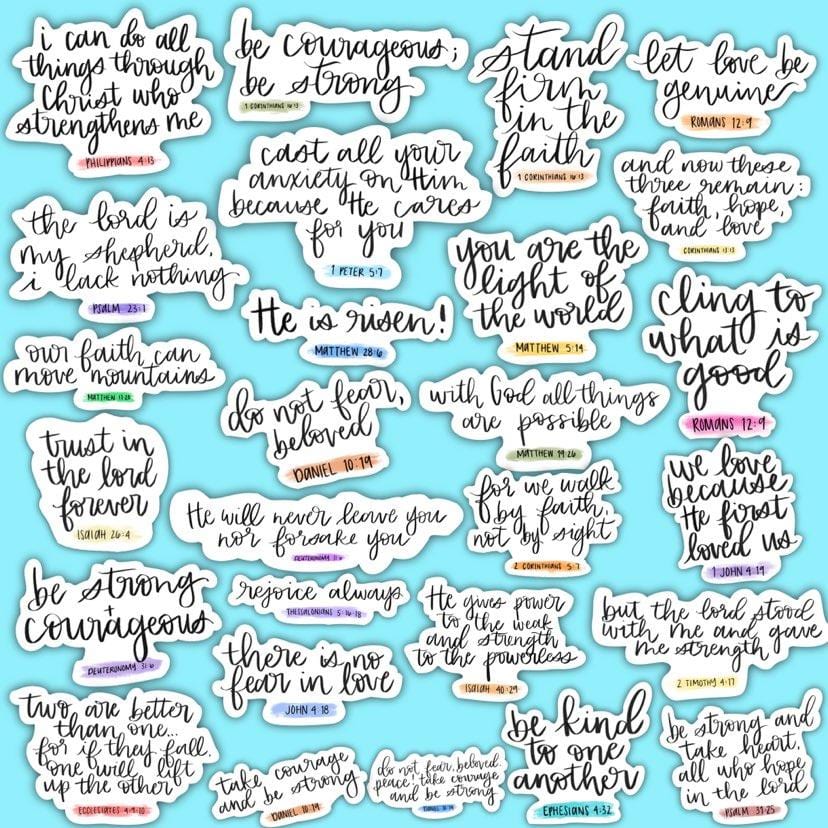 i can do all
things through
Christ who
strengthens me
PHILIPPIANS 4:13
be courageous;
be strong
1 CORINTHIANS 16:13
stand
firm
in the
faith
1 CORINTHIANS 16:13
let love be
genuine
ROMANS 12:9
cast all your
anxiety on Him
because He cares
for you
1 PETER 5:7
and now these
three remain:
faith, hope,
and love
CORINTHIANS 13:13
the lord is
my shepherd,
i lack nothing
PSALM 23:1
you are the
light of
the world
MATTHEW 5:14
He is risen!
MATTHEW 28:6
cling to
what is
good
ROMANS 12:9
our faith can
move mountains
MATTHEW 17:20
do not fear,
beloved
DANIEL 10:19
with God all things
are possible
MATTHEW 19:26
trust in
the lord
forever
ISAIAH 26:4
He will never leave you
nor forsake you
DEUTERONOMY 31:6
for we walk
by faith,
not by sight
2 CORINTHIANS 5:7
we love
because
He first
loved us
1 JOHN 4:19
be strong
+
courageous
DEUTERONOMY 31:6
rejoice always
THESSALONIANS 5:16-18
He gives power
to the weak
and strength
to the powerless
ISAIAH 40:29
but the lord stood
with me and gave
me strength
2 TIMOTHY 4:17
there is no
fear in love
JOHN 4:18
two are better
than one...
for if they fall,
one will lift
up the other
ECCLESIATES 4:9-10
take courage
and be strong
DANIEL 10:19
do not fear, beloved.
peace! take courage
and be strong
DANIEL 10:19
be kind
to one
another
EPHESIANS 4:32
be strong and
take heart,
all who hope
in the lord
PSALM 31:25